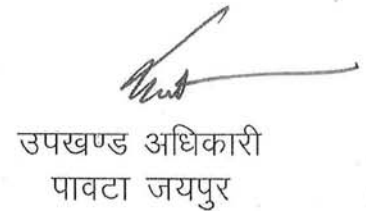 उपखण्ड अधिकारी
पावटा जयपुर